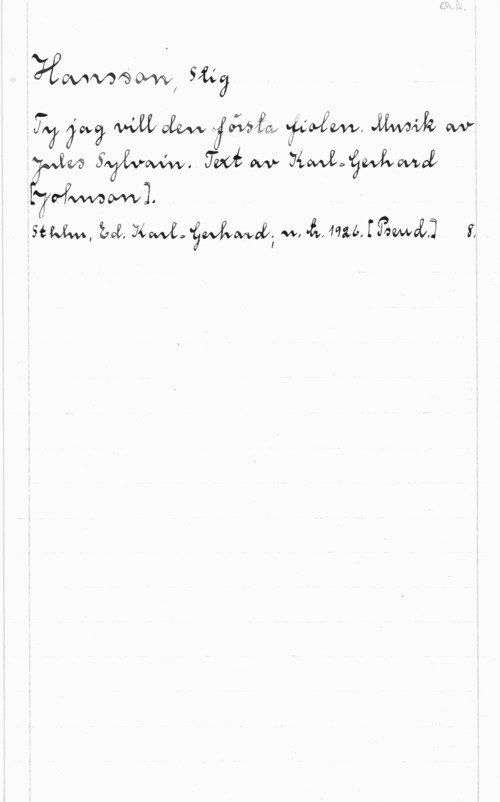 Ork.
Hansson, Stig
Ty jag vill den första fiolen. Musik av
Jules Sylvain. Text av Karl-Gerhard
[Johnson].
Sthlm, Ed. Karl-Gerhard; u. tr. 1926. [Pseud.] 8.